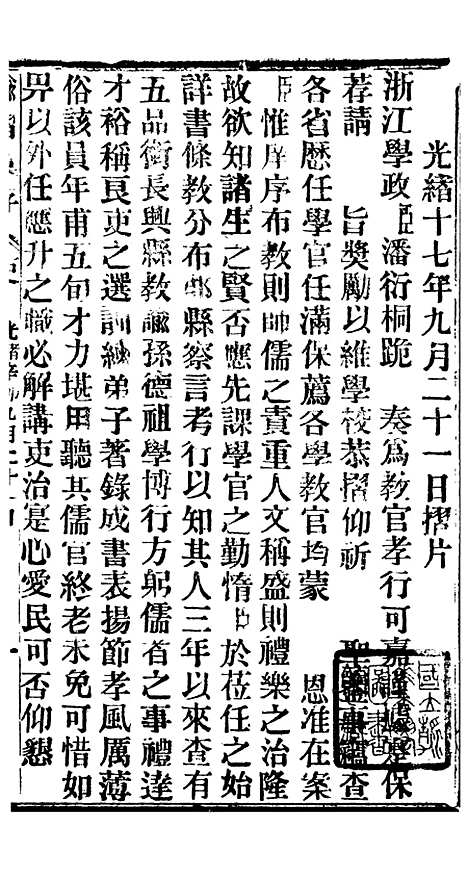 光緒十七年九月二十一日摺片
浙江學政臣潘衍桐跪 奏爲教官孝行可嘉 保
荐請 旨奬勵以維學校恭摺仰祈 聖鑒事 查
各省歷任學官任滿保薦各學教官均蒙 恩准在案
臣惟庠序布教則師儒之責重人文稱盛則禮樂之治隆
故欲知諸生之賢否應先課學官之勤惰臣於莅任之始
詳書條教分布郡縣察言考行以知其人三年以來查有
五品銜長興縣教諭孫德祖學博行方躬儒者之事禮達
才裕稱良吏之選訓練弟子著錄成書表揚節孝風厲薄
俗該員年甫五旬才力堪用聽其儒官終老未免可惜如
畀以外任應升之職必解講吏治寔心愛民可否仰懇
光緒 九月二十